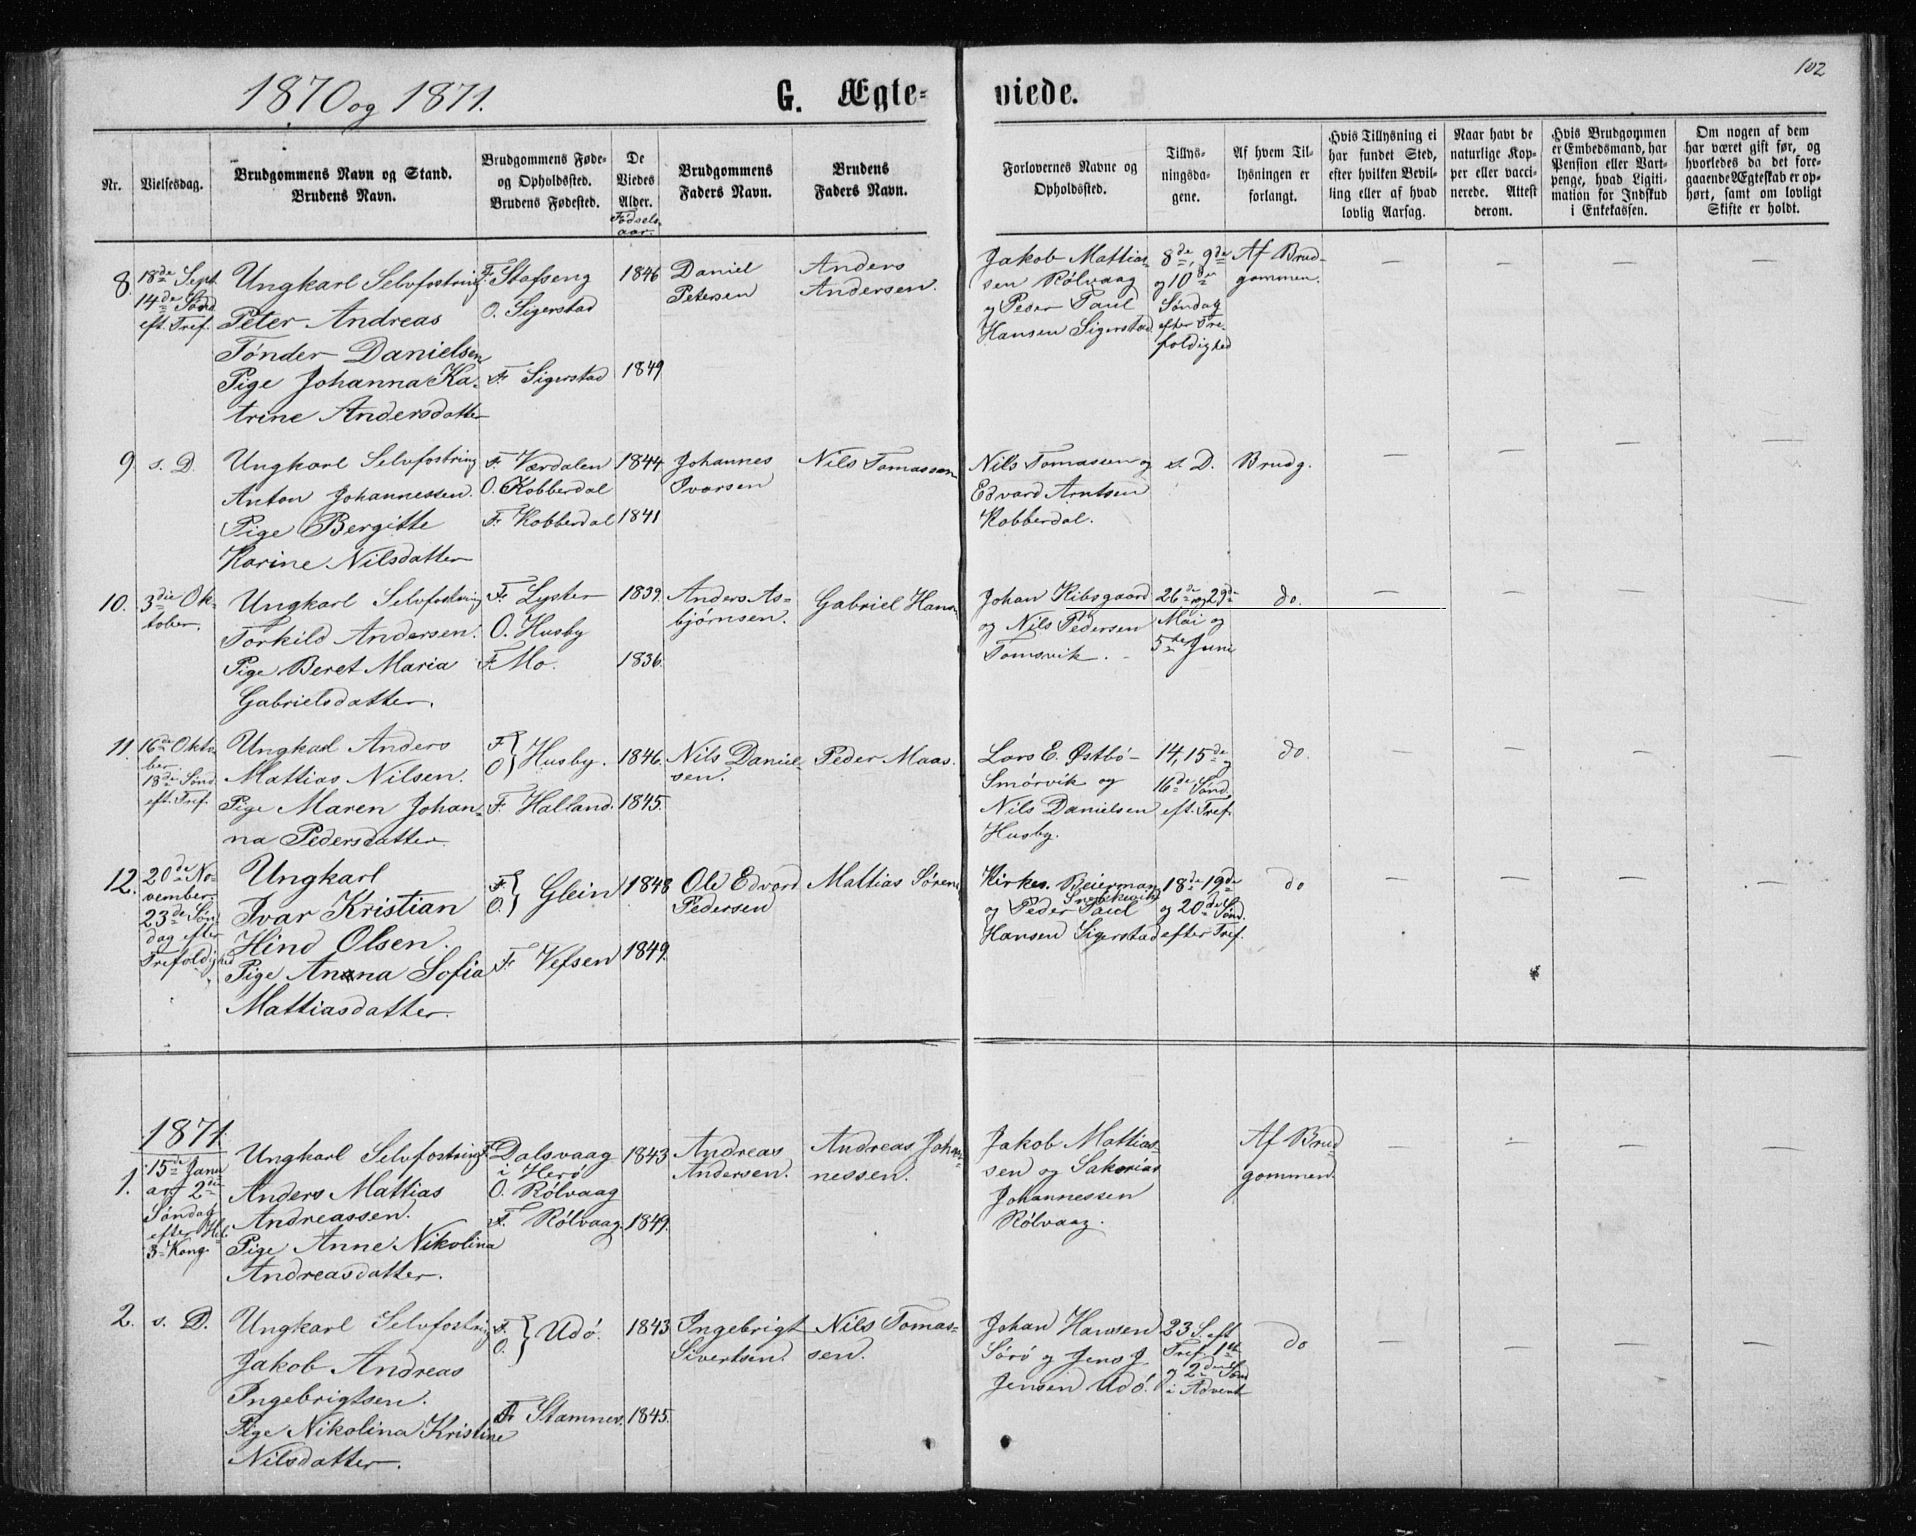 1870 og 1871.
G. Ægte-
viede.
102
Nr.
Vielsesdag.
Brudgommens Navn og Stand.
Brudens Navn.
Brudgommens Føde-
og Opholdssted.
Brudens Fødested.
De
Viedes
Alder.
Fødsels-
aar.
Brudgommens
Faders Navn.
Brudens
Faders Navn.
Forlovernes Navne og
Opholdssted.
Tillys-
ningsda-
gene.
Af hvem Til-
lysningen er
forlangt.
Hvis Tillysning ei
har fundet Sted,
efter hvilken Bevil-
ling eller af hvad
lovlig Aarsag.
Naar havt de
naturlige Kop-
per eller vacci-
nerede. Attest
derom.
Hvis Brudgommen
er Embedsmand, har
Pension eller Vart-
penge, hvad Ligiti-
mation for Indskud
i Enkekassen.
Om nogen af dem
har været gift før, og
hvorledes da det fore-
gaaende Ægteskab er op-
hørt, samt om lovligt
Skifte er holdt.
8.
18de Sept.
14de Sønd.
eft. Tref.
Ungkarl Selvfostring
Peter Andreas
Tønder Danielsen
Pige Johanna Ka-
trine Andersdatter
F. Stafseng
O. Sigerstad
F. Sigerstad
1846
1849
Daniel
Petersen
Anders
Andersen.
Jakob Mattias-
sen Rølvaag
og Peder Paul
Hansen Sigerstad
8de, 9de
og 10de
Søndag
efter Tre-
foldighed
Af Brud-
gommen.
9.
s. D.
Ungkarl Selvfostring
Anton Johannessen.
Pige Bergitte
Karine Nilsdatter
F. Værdalen
O. Kobberdal
F. Kobberdal
1844
1841
Johannes
Ivarsen
Nils Tomassen
Nils Tomassen og
Edvard Arntsen
Kobberdal.
s. D.
Brudg.
10.
3die Ok-
tober.
Ungkarl Selvfostring
Torkild Andersen.
Pige Beret Maria
Gabrielsdatter.
F. Lyster
O. Husby
F. Mo.
1839.
1836.
Anders As-
bjørnsen.
Gabriel Hans
Johan Kibsgaard
og Nils Pedersen
Tomsvik.
26de og 29de
Mai og
5te Juni
do.
11.
16de Okto-
ber.
18de Sønd.
eft. Tref.
Ungkarl Anders
Mattias Nilsen.
Pige Maren Johan-
na Pedersdatter.
F. O. } Husby.
F. Halland.
1846.
1845.
Nils Daniel-
sen.
Peder Maas.
Lars E. Østbø-
Smørvik og
Nils Danielsen
Husby.
14, 15de og
16de Sønd.
eft. Tref.
do.
12.
20de No-
vember.
23de Søn-
dag efter
Trefoldighed
Ungkarl
Ivar Kristian
Hind Olsen.
Pige Anna Sofia
Mattiasdatter.
F. O. } Glein
F. Vefsen
1848
1849.
Ole Edvard
Pedersen
Mattias Søren
Kirkes. Beierman
og Peder Paul
Hansen Sigerstad
18de 19de
og 20de Sønd.
efter Tref.
do
1871.
1.
15de Janu-
ar, 2den
Søndag
efter Hel.
3 Kong.
Ungkarl Selvfostring
Anders Mattias
Andreassen.
Pige Anne Nikolina
Andreasdatter.
F. Dalsvaag
i Herø
O. Rølvaag
F. Rølvaag.
1843
1849.
Andreas
Andersen.
Andreas Johan-
nessen.
Jakob Mattias-
sen og Sakarias
Johannessen
Rølvaag.
Af Brud
gommen.
2.
s. D.
Ungkarl Selvfostring
Jakob Andreas
Ingebrigtsen.
Pige Nikolina Kristine
Nilsdatter.
F. O. } Udø.
F. Stamnes.
1843
1845.
Ingebrigt
Sivertsen.
Nils Tomas-
sen.
Johan Hansen
Sørø og Jens J.
Jensen Udø.
23 S. eft
Tref. 1ste
og 2den Sønd
i Advent
do